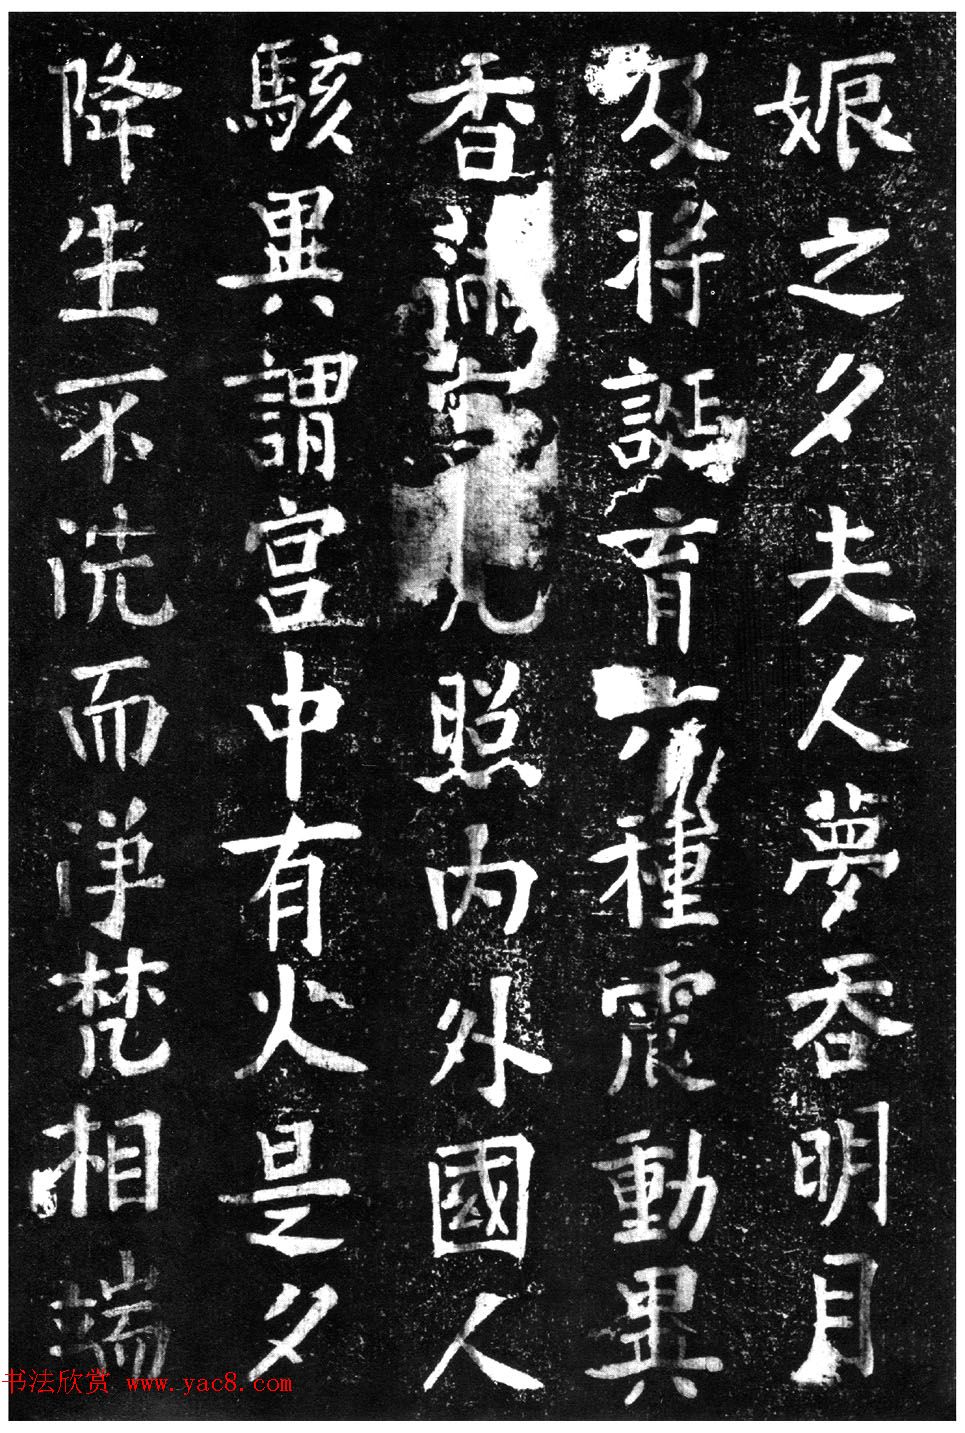 娠之夕夫人夢吞明月
及将誕育六種震動異
香滿室光照内外國人
駭異謂宫中有火是夕
降生不洗而浄梵相端
书法欣赏 www.yac8.com